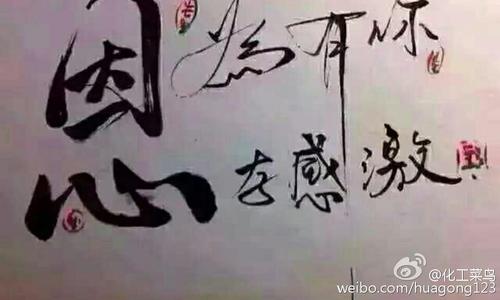 因為有你
心存感激
@化工菜鸟
weibo.com/huagong123